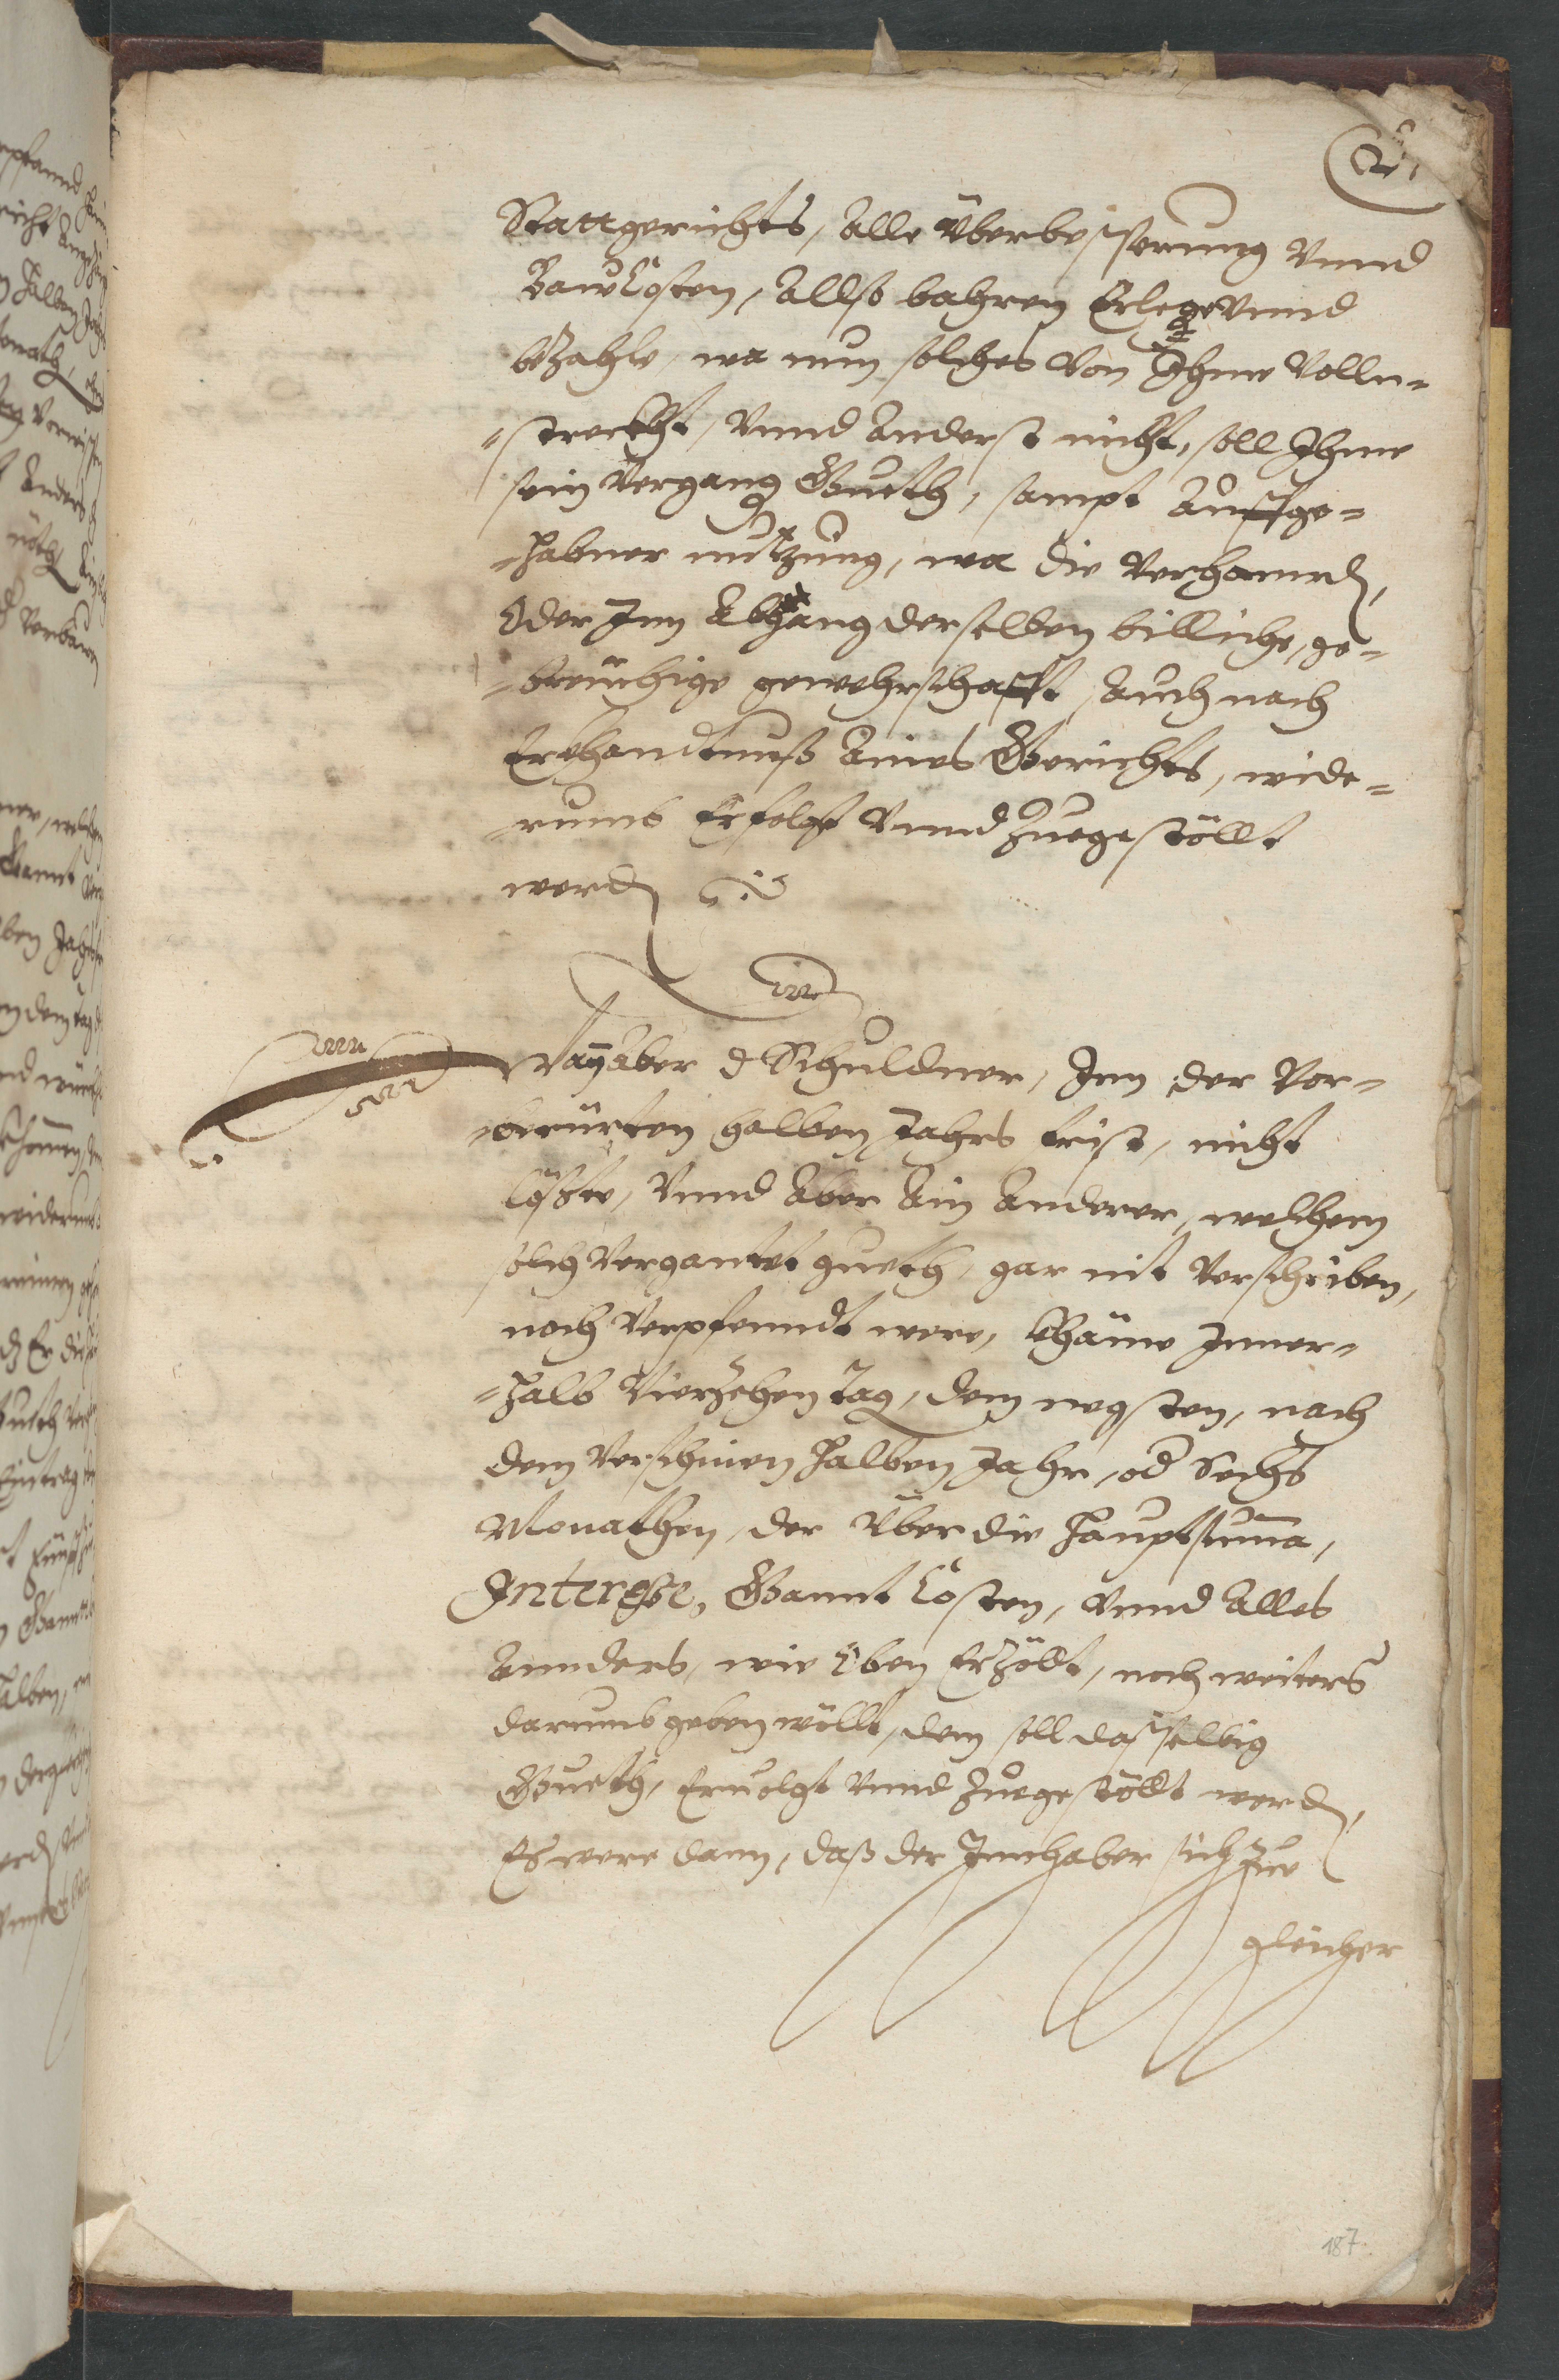 Stattgerichts, Alle Überbesserung Vnnd
Bauw Cösten, Allß bahren Erlege Vnnd
bezahle, wa nun solches von Ihme Volln-
-streckht, Vnnd Anderst nicht, soll Ihme
sein Vergang Gueth, sampt Auffge-
-habner nutzung, wa die Verhannd,
Oder Inn Abgang derselben billiche, ge-
-breüchige gewehrschafft, Auch nach
Erkhandtnuß Aines Gerichts, wide-
-rumb Erfolgt Vnnd Zuegestöllt
werd
Wa aber d Schuldner, Inn der Vor-
-berürten halben Jahrs frist, nicht
lößte, Vnnd Aber Ain Anderer, welchem
solch Vergantet gueth, gar nit Verschriben,
noch Verpfenndt were, khäme Inner-
-halb Vierzehen Tag, dem negsten, nach
dem Verschinen halben Jahr, od Sechs
Monathen, der Über die Hauptsumma,
Interesse, Gannt Cösten, Vnnd Alles
Annders, wie Oben Erzölt, noch weiters
darumb geben wöllt, dem soll dasselbig
Gueth, Ervolgt Vnnd Zuegestöllt werd,
Es were dann, daß der Innhaber sich Zue
gleicher
187.